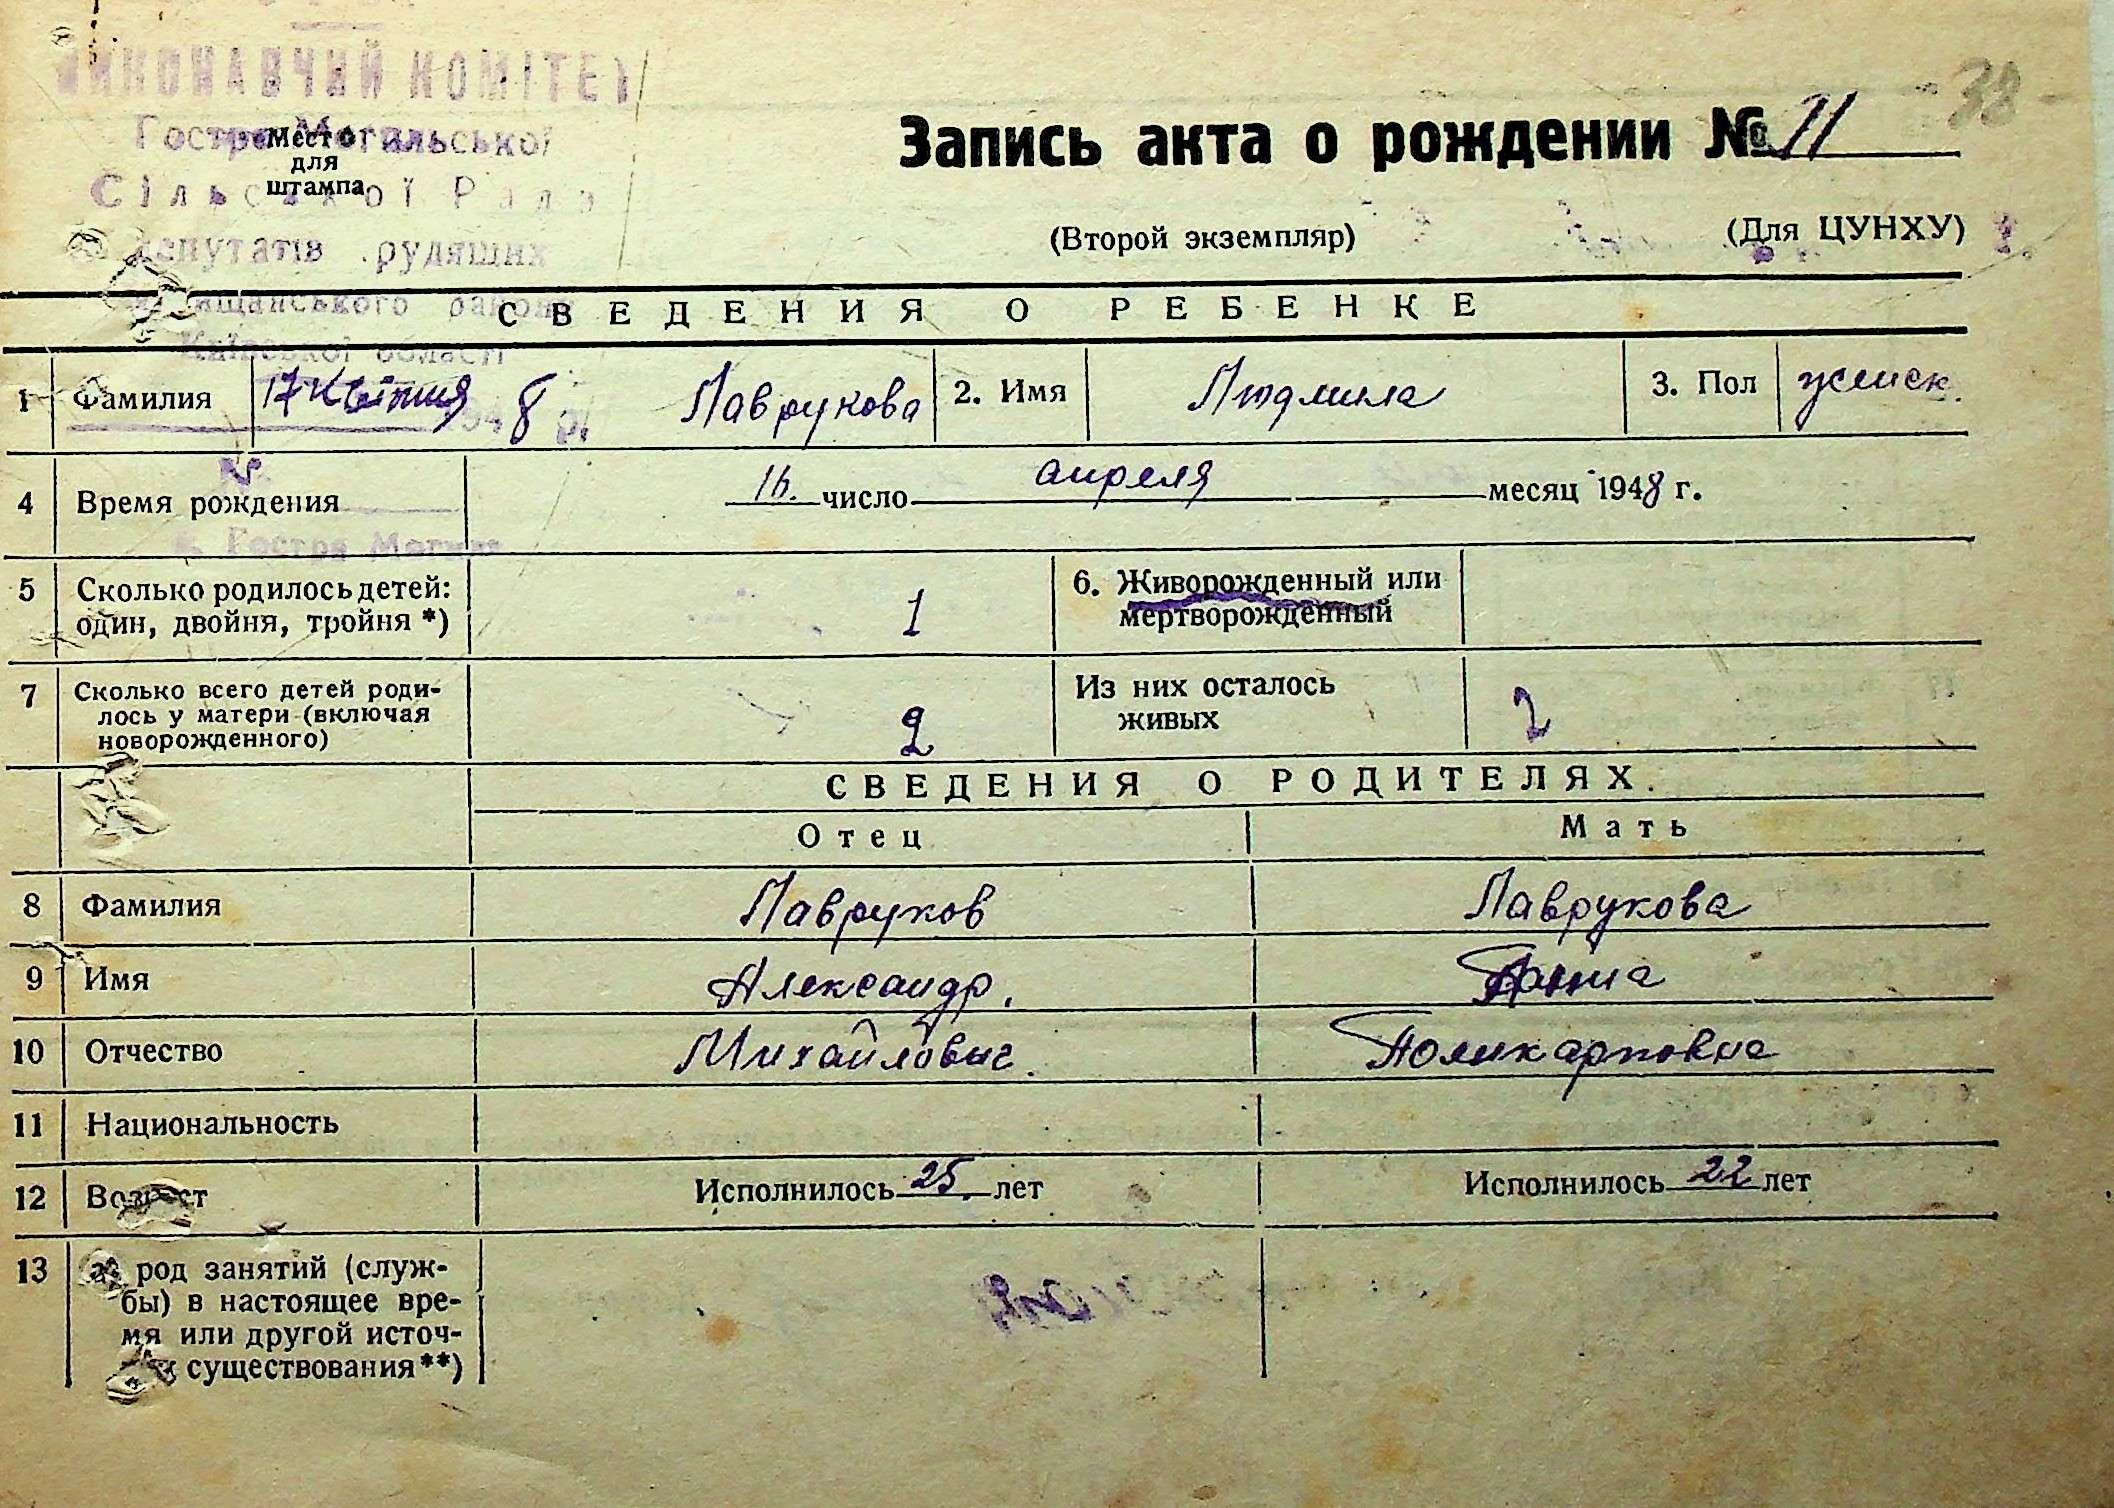 38
ВИКОНАВЧИЙ КОМІТЕТ
Гостро Могильської
Сільської Ради
депутатів трудящих
району
Київської області
17 Квітня 1948 р.
с. Гостра Могила
Место
для
штампа
Запись акта о рождении № 11
(Второй экземпляр) (Для ЦУНХУ)
СВЕДЕНИЯ О РЕБЕНКЕ
1 Фамилия Лаврукова 2. Имя Людмила 3. Пол женск.
4 Время рождения 16. число апреля месяц 1948 г.
5 Сколько родилось детей: 1 6. Живорожденный или
один, двойня, тройня *) мертворожденный
7 Сколько всего детей роди- 2 Из них осталось 2
лось у матери (включая живых
новорожденного)
СВЕДЕНИЯ О РОДИТЕЛЯХ.
Отец Мать
8 Фамилия Лавруков Лаврукова
9 Имя Александр. Ганна
10 Отчество Михайлович. Поликарповна
11 Национальность
12 Возраст Исполнилось 25. лет Исполнилось 22 лет
13 а) род занятий (служ-
бы) в настоящее вре-
мя или другой источ-
ник существования **)